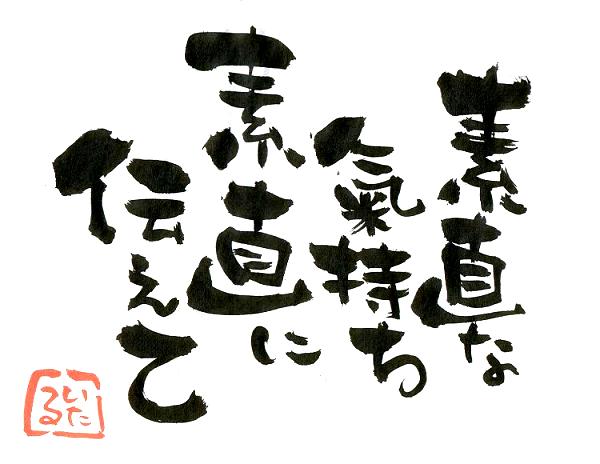 素直な
氣持ち
素直に
伝えて